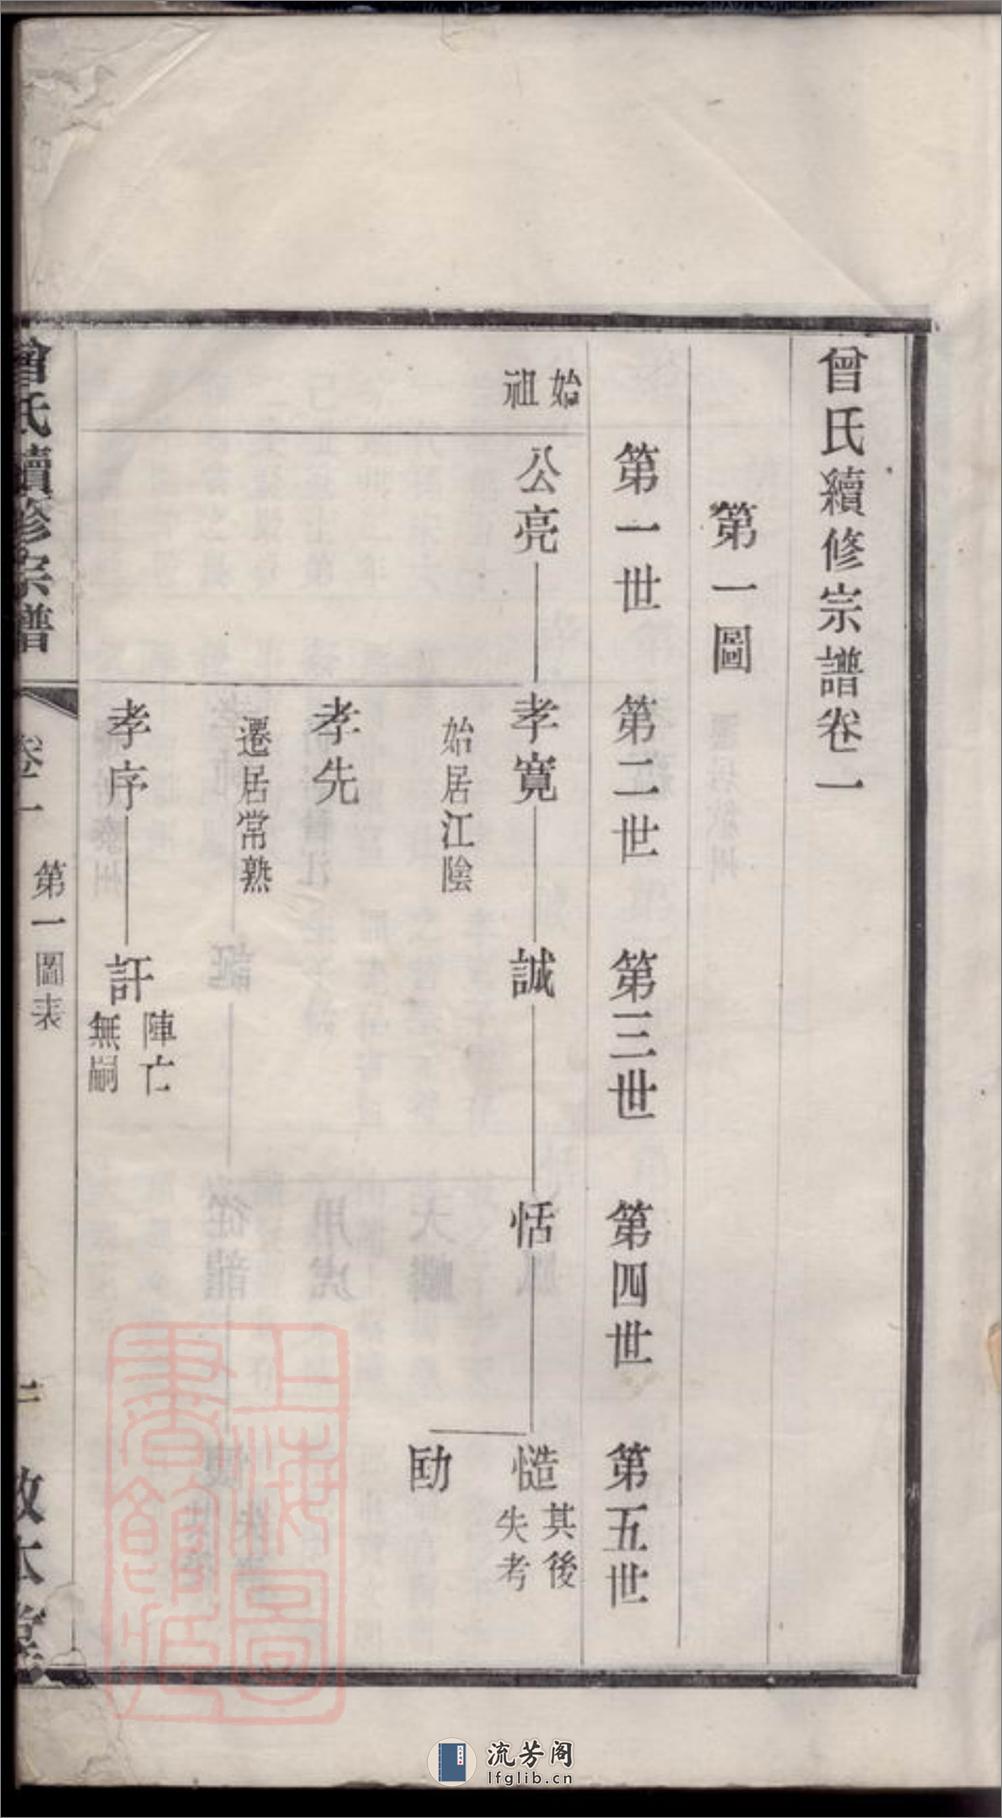 曾氏續修宗譜卷一
第一圖
第一世 第二世 第三世 第四世 第五世
始祖
公亮 孝寬 誠 恬 慥
其後
失考
始居江陰
勔
孝先
遷居常熟
孝序 訏
陣亡
無嗣
曾氏續修宗譜 卷一 第一圖表 一 敦本堂
上海圖
書館藏
流芳阁
lfglib.cn